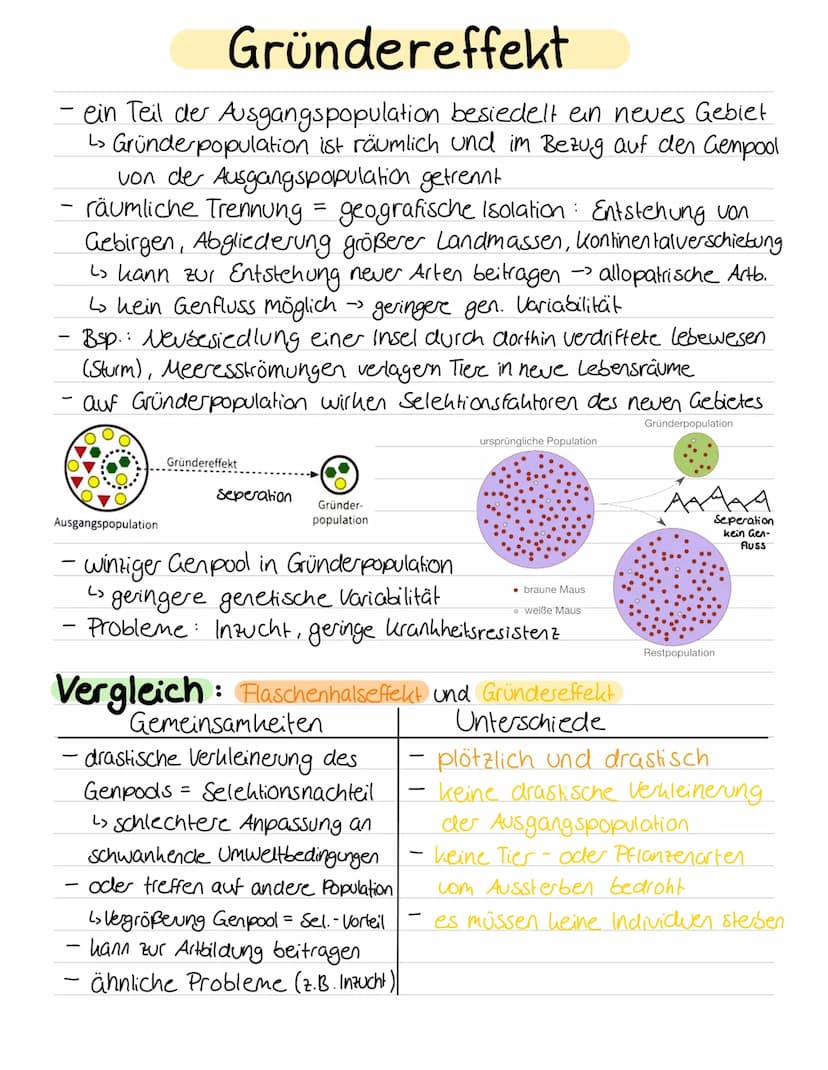 Gründereffekt
- ein Teil der Ausgangspopulation besiedelt ein neues Gebiet
↳ Gründerpopulation ist räumlich und im Bezug auf den Genpool
von der Ausgangspopulation getrennt
- räumliche Trennung = geografische Isolation: Entstehung von
Gebirgen, Abgliederung größerer Landmassen, Kontinentalverschiebung
↳ kann zur Entstehung neuer Arten beitragen -> allopatrische Artb.
↳ kein Genfluss möglich -> geringere gen. Variabilität
- Bsp.: Neubesiedlung einer Insel durch dorthin verdriftete Lebewesen
(Sturm), Meeresströmungen verlagern Tiere in neue Lebensräume
- auf Gründerpopulation wirken Selektionsfaktoren des neuen Gebietes
Gründereffekt
Seperation
Ausgangspopulation
Gründer-
population
ursprüngliche Population
Gründerpopulation
Seperation
kein Gen-
fluss
braune Maus
weiße Maus
Restpopulation
- winziger Genpool in Gründerpopulation
↳ geringere genetische Variabilität
- Probleme: Inzucht, geringe Krankheitsresistenz
Vergleich: Flaschenhalseffekt und Gründereffekt
Gemeinsamkeiten
- drastische Verkleinerung des
Genpools = Selektionsnachteil
↳ schlechtere Anpassung an
schwankende Umweltbedingungen
- oder treffen auf andere Population
↳ Vergrößerung Genpool = Sel.-Vorteil
- kann zur Artbildung beitragen
- ähnliche Probleme (z.B. Inzucht)
Unterschiede
- plötzlich und drastisch
- keine drastische Verkleinerung
der Ausgangspopulation
- keine Tier- oder Pflanzenarten
vom Aussterben bedroht
- es müssen keine Individuen sterben